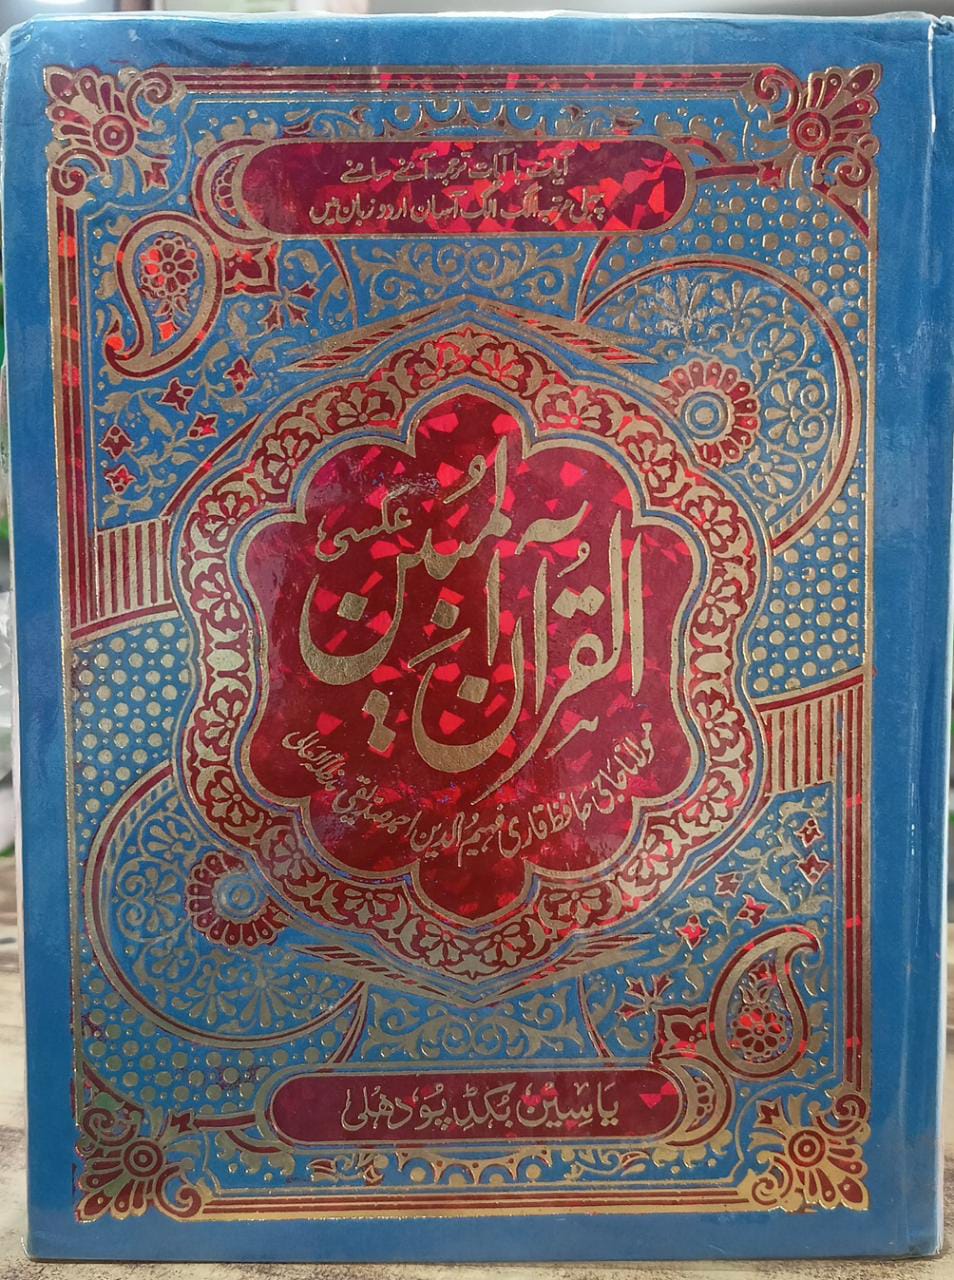 آیات با آیات ترجمہ آمنے سامنے
پہلی مرتبہ الگ الگ آسان اردو زبان میں
القرآن المبین
عکسی
مولانا حاجی حافظ قاری فہیم الدین احمد صدیقی مدظلہ العالی
یاسین بکڈپو دھلی